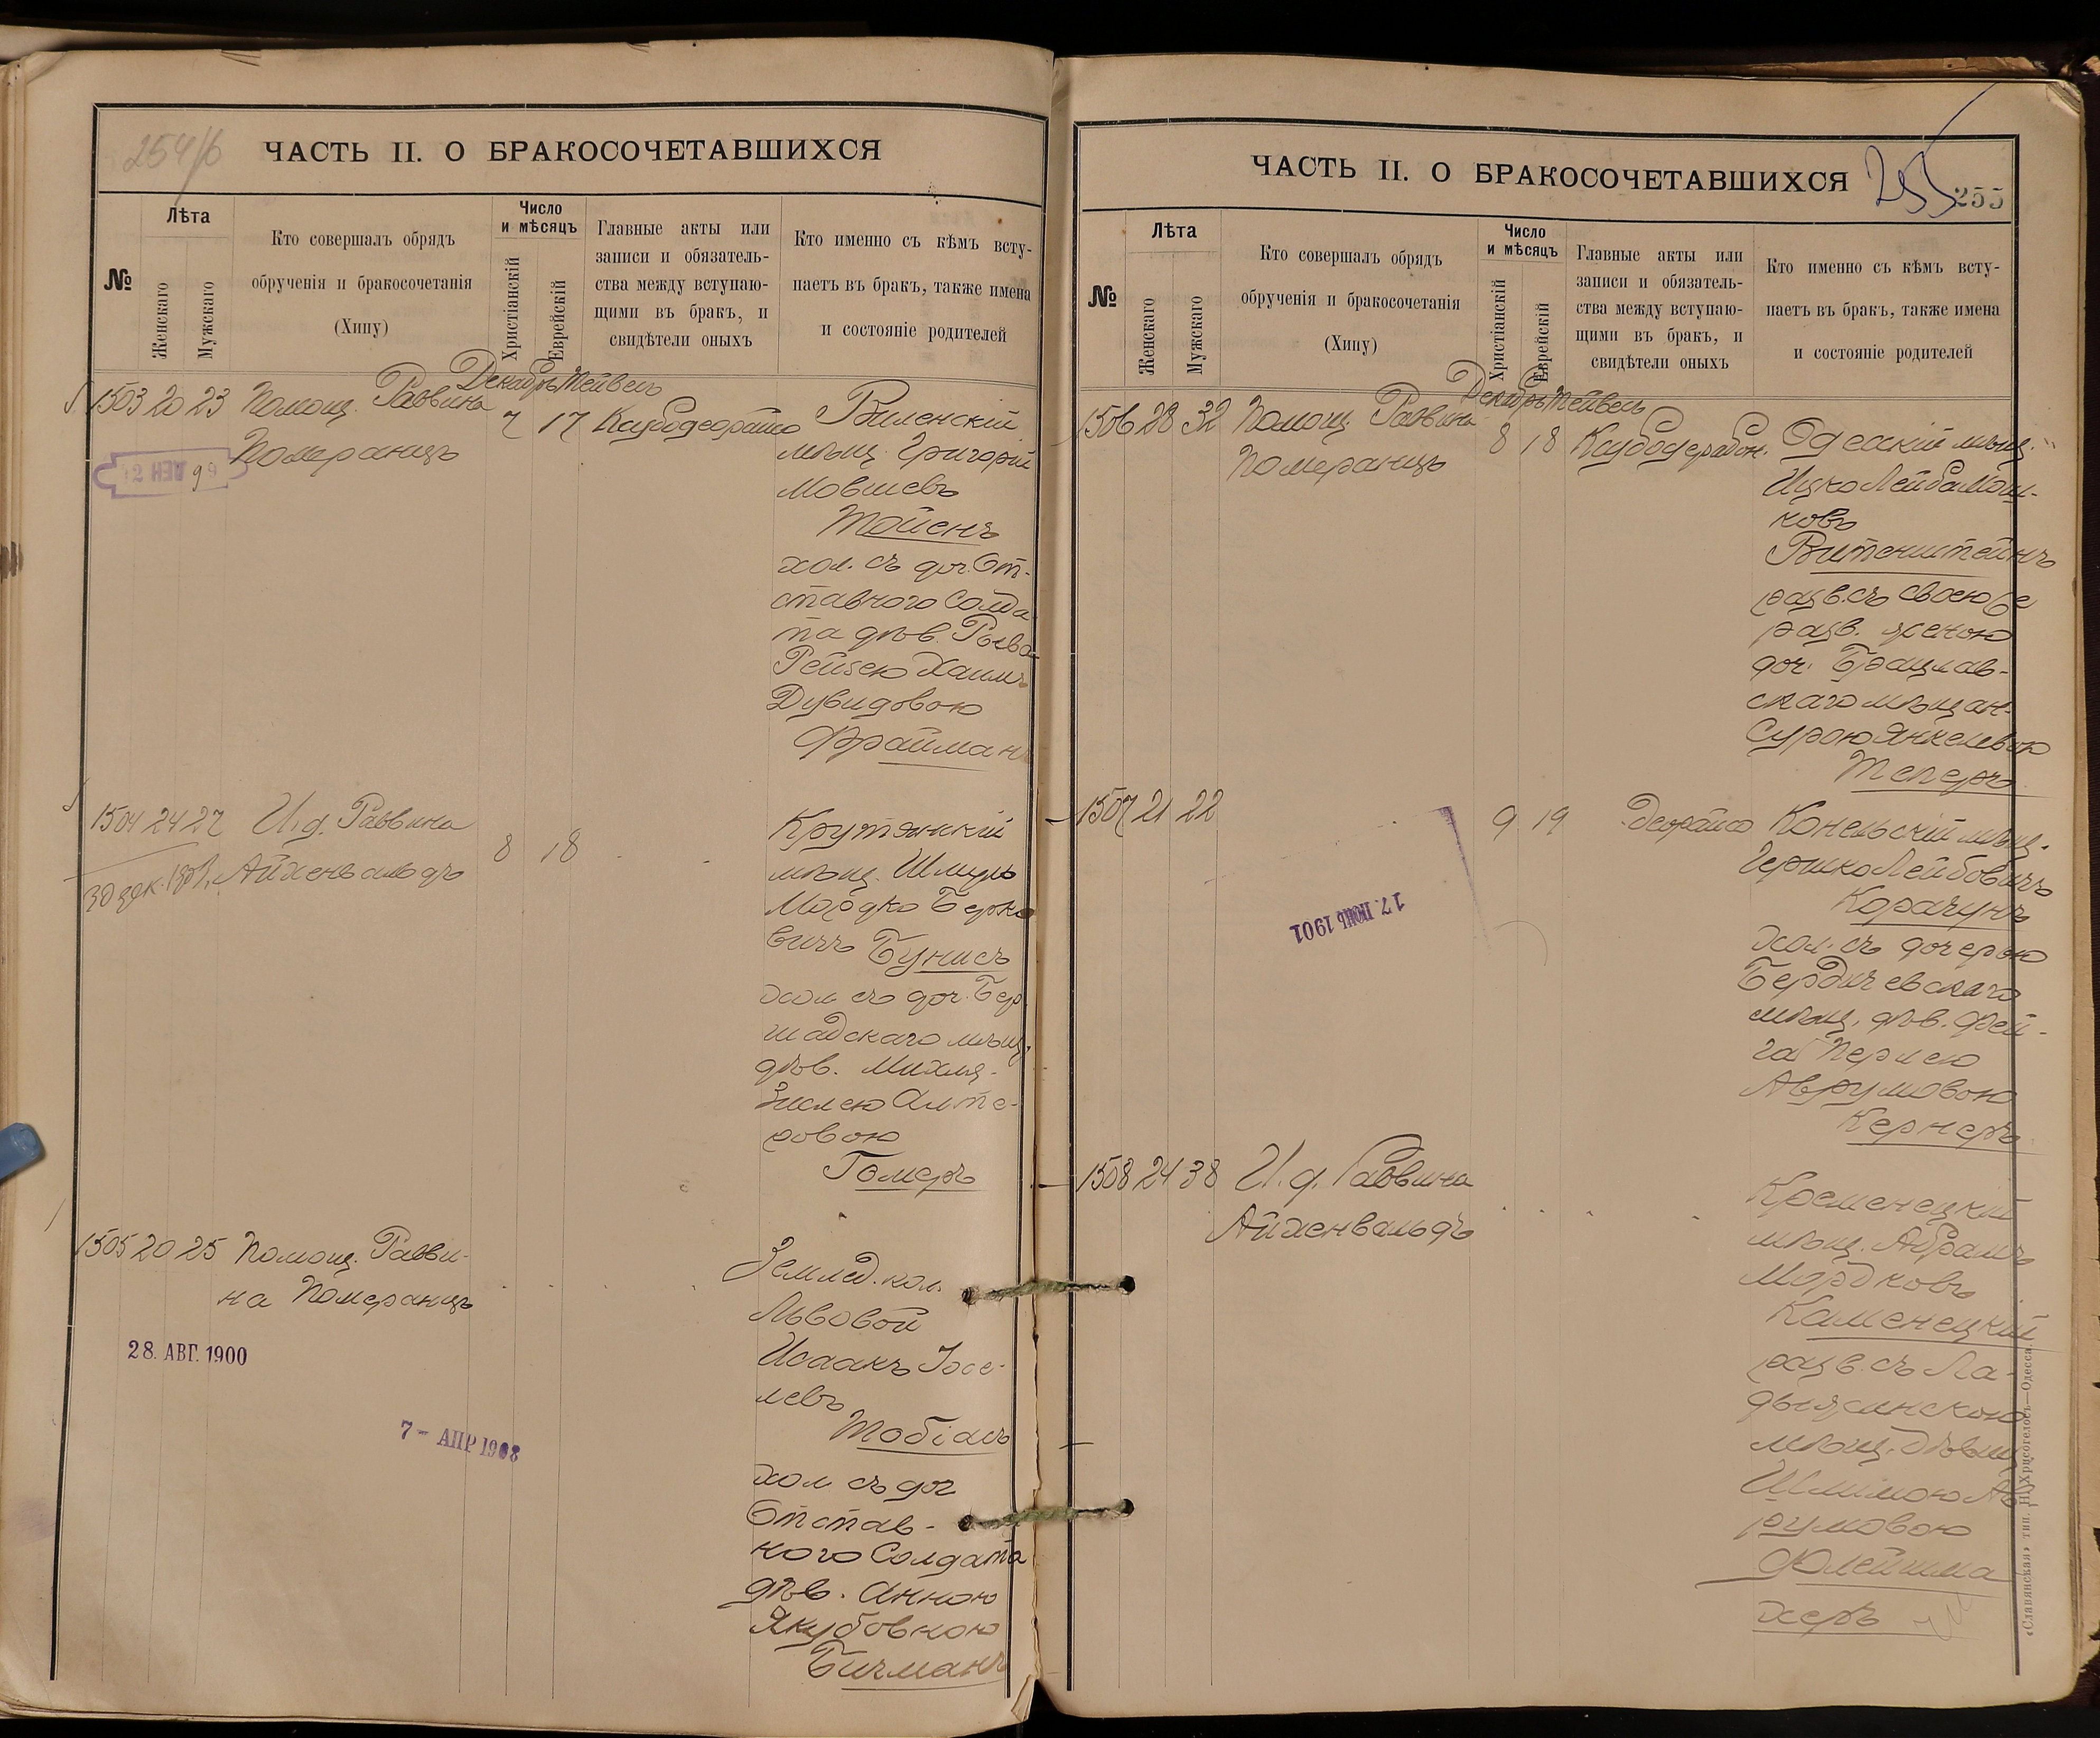 254/б
ЧАСТЬ II. О БРАКОСОЧЕТАВШИХСЯ
№
Лѣта
Женскаго
Мужскаго
Кто совершалъ обрядъ
обрученія и бракосочетанія
(Хипу)
Число
и мѣсяцъ
Христіанскій
Еврейскій
Главные акты или
записи и обязатель-
ства между вступаю-
щими въ бракъ, и
свидѣтели оныхъ
Кто именно съ кѣмъ всту-
паетъ въ бракъ, также имена
и состояніе родителей
Декабрь Тейвесъ
1503 20 23 Помощ. Раввина
Померанцъ
7 17
Виленскій
мѣщ. Григорій
Мовшевъ
Тойенъ
хол. съ доч. От-
ставного Солда
та дѣв. Ривва
Рейзею Хаимъ
Дувидовою
Фрайманъ
1504 24 27 И. д. Раввина
Айхенвальдъ
8 18
Крутянскій
мѣщ. Шмуль
Мордко Берко
вичъ Бунисъ
хол съ доч. Бер
шадскаго мѣщ.
дѣв. Михля-
Зислею Алте-
ровою
Гомеръ
1505 20 25 Помощ. Равви-
на Померанцъ
28. АВГ. 1900
7 - АПР 1908
Землед. кол.
Львовой
Исаакъ Іосе-
левъ
Тобіасъ
хол съ доч
Отстав-
ного Солдата
дѣв. Анною
Якубовною
Бичманъ
ЧАСТЬ II. О БРАКОСОЧЕТАВШИХСЯ
255
255
№
Лѣта
Женскаго
Мужскаго
Кто совершалъ обрядъ
обрученія и бракосочетанія
(Хипу)
Число
и мѣсяцъ
Христіанскій
Еврейскій
Главные акты или
записи и обязатель-
ства между вступаю-
щими въ бракъ, и
свидѣтели оныхъ
Кто именно съ кѣмъ всту-
паетъ въ бракъ, также имена
и состояніе родителей
Декабрь Тейвесъ
1506 28 32 Помощ. Раввина
Померанцъ
8 18
Одесскій мѣщ.
Ицко Лейба Мош-
ковъ
Витенштейнъ
разв. съ своею
разв. женою
доч. Брацлав-
скаго мѣщан.
Сурою Янкелевою
Теперъ
1507 21 22
9 19 Деорайсо
17. ІЮН. 1901
Конельскій мѣщ.
Гершко Лейбовичъ
Корачунъ
хол. съ дочерью
Бердичевскаго
мѣщ. дѣв. Фей-
га Перлею
Аврумовою
Кернеръ
1508 24 38 И. д. Раввина
Айхенвальдъ
Кременецкій
мѣщ. Абрамъ
Мордковъ
Каменецкій
разв. съ Ла-
дыжинскою
мѣщ. дѣвиц
Шлимою Ав
румовою
Флейшма
херъ
«Славянская» тип. Н. Хрисогелосъ—Одесса.